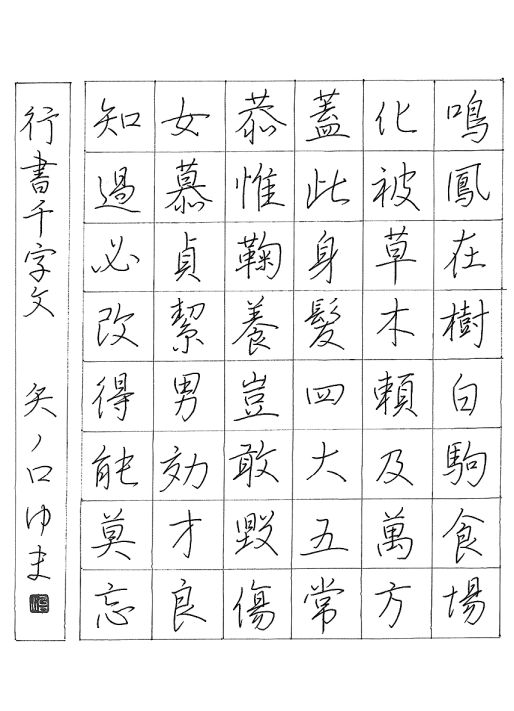 鳴鳳在樹白駒食場
化被草木頼及萬方
蓋此身髮四大五常
恭惟鞠養豈敢毀傷
女慕貞絜男効才良
知過必改得能莫忘
行書千字文　矢ノ口ゆま